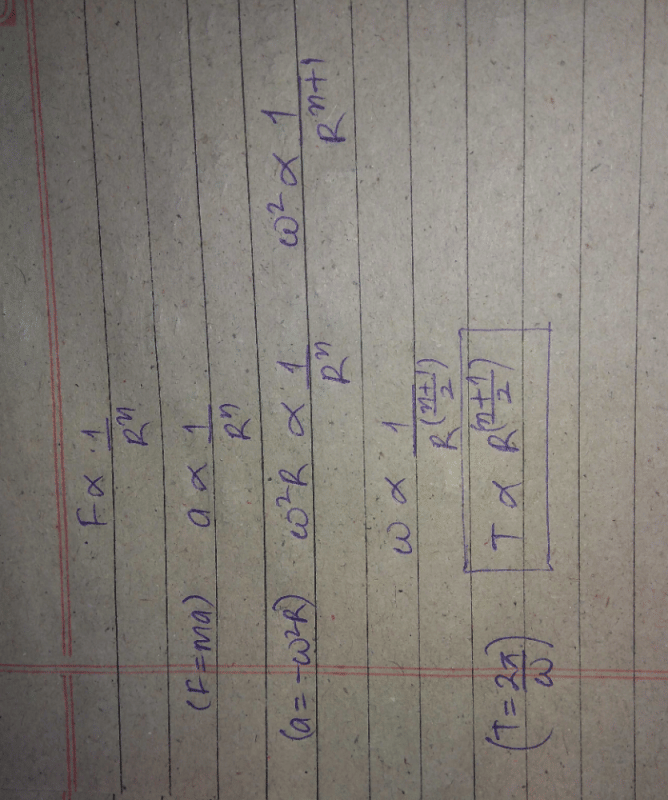 F ∝ 1/Rⁿ
(F=ma) a ∝ 1/Rⁿ
(a = -ω²R) ω²R ∝ 1/Rⁿ ω² ∝ 1/Rⁿ⁺¹
ω ∝ 1/R^((n+1)/2)
(T = 2π/ω) T ∝ R^((n+1)/2)